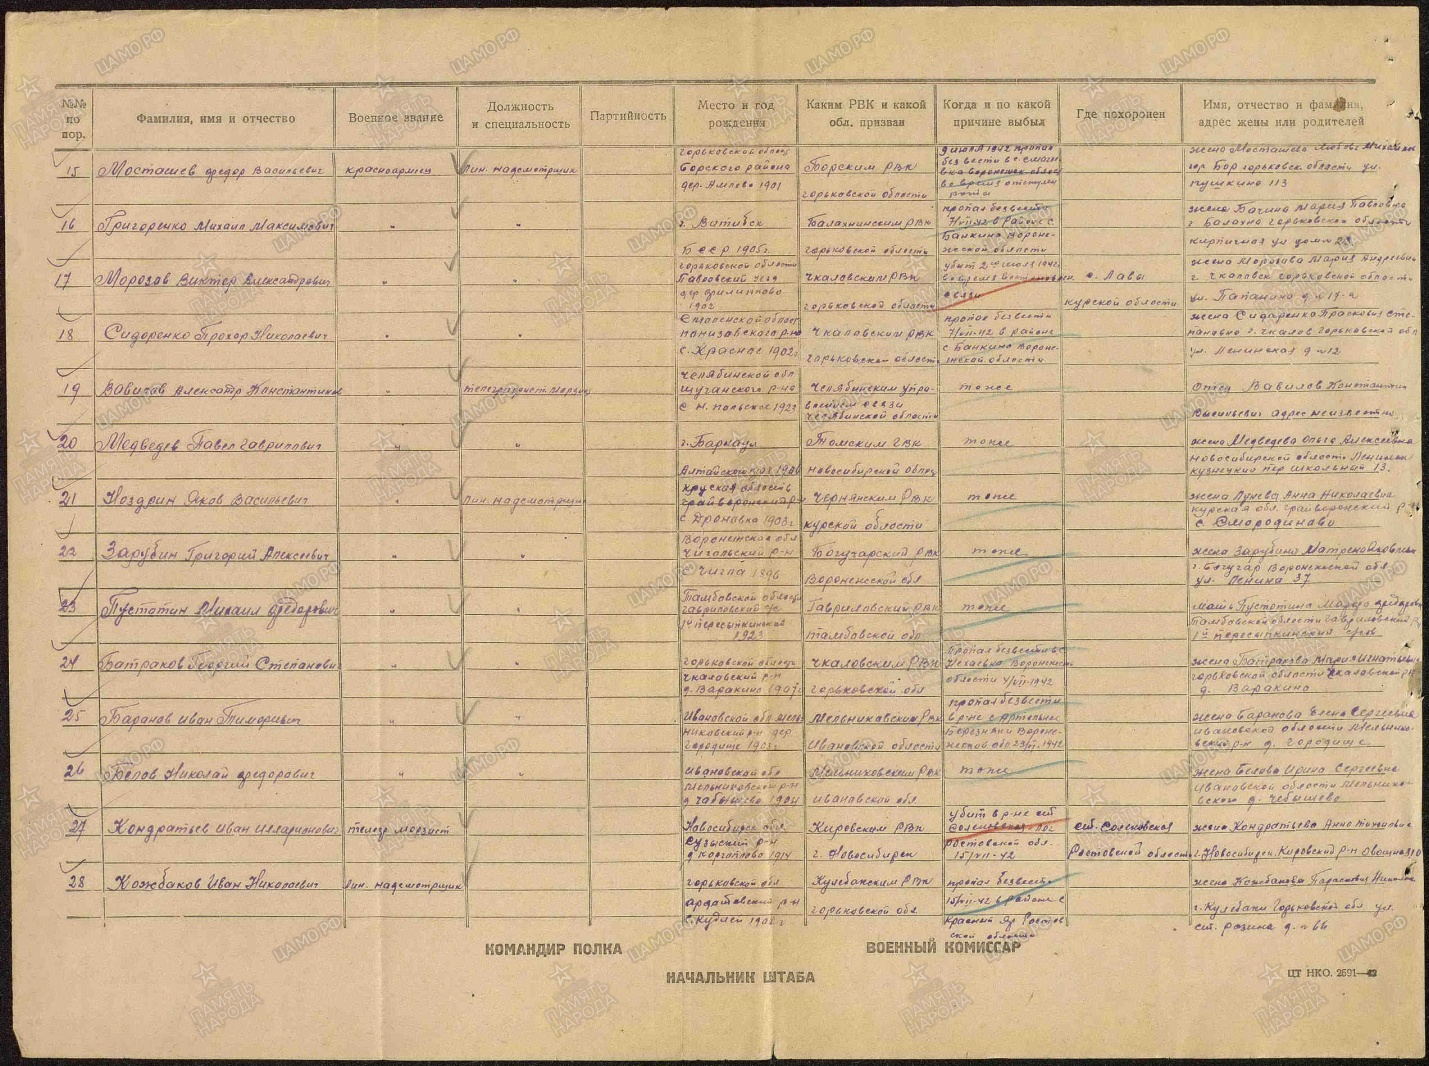 №№ по пор.
Фамилия, имя и отчество
Военное звание
Должность и специальность
Партийность
Место и год рождения
Каким РВК и какой обл. призван
Когда и по какой причине выбыл
Где похоронен
Имя, отчество и фамилия, адрес жены или родителей
15 Мосташев Федор Васильевич красноармеец Лин. надсмотрщик
горьковской облас. Борского района 1901
Борским РВК горьковской области
9 июля 1942 пропал без вести в с.
жена Мосташева Любовь
гор. Бор горьковск. области ул. Пушкина 113
16 Григоренко Михаил Максимович " "
г. Витебск БССР 1905г.
Балахнинским РВК горьковской области
пропал без вести 4/VII-42 в районе с Банкино Воронежской области
жена Бачина Мария Павловна
г. Балахна горьковской области
кирпичная ул дом № 23
17 Морозов Виктор Александрович " "
горьковской области Павловский 1902
Чкаловским РВК горьковской области
убит 2 июля 1942 связи
с. Лавы Курской области
жена Морозова Мария Андреевна
г. Чкаловск горьковской области
ул. Папанина д №
18 Сидоренко Прохор Николаевич " "
Смоленской област р-на с. Красное 1902г
Чкаловским РВК горьковской област
пропал без вести 4/VII-42 в районе с Банкино Воронежской области
жена Сидоренко Прасковия Степановна г. Чкалов горьковской обл
ул. Ленинская д №12
19 Вавилов Александр Константинов " телеграфист морзист
Челябинской обл р-на 1923
Челябинским управлением связи Челябинской области
тоже
Отец Вавилов Константин
Васильевич адрес неизвестна
20 Медведев Павел Гаврилович " "
г. Барнаул Алтайского края 1906
Томским ГВК Новосибирской облас
тоже
жена Медведева Ольга Алексеевна
Новосибирской области Ленинск
кузнецкий пер школьный 13.
21 Ноздрин Яков Васильевич " Лин. надсмотрщик
курская область грайворонский р-н с Дроновка 1903г
Чернянским РВК Курской области
тоже
жена Лунева Анна Николаевна
курская обл. грайворонский р
с Смородиново
22 Зарубин Григорий Алексеевич " "
Воронежская обл р-н с Чигла 1896
Богучарский РВК Воронежской обл
тоже
жена Зарубина Матрена
г. Богучар Воронежской обл
ул. Ленина 37
23 Пустотин Михаил Федорович " "
Тамбовской области гавриловский 1е пересыпкинский 1923
Гавриловский РВК Тамбовской обл
тоже
мать Пустотина
Тамбовской области гавриловский
1е пересыпкинский
24 Батраков Георгий Степанович " "
горьковской области Чкаловский р-н д. Варакино 1907г
Чкаловским РВК горьковской обл
пропал без вести в с Воронежской области 4/VII-1942
жена Батракова Мария Игнатьевна
горьковской области Чкаловский р
д. Варакино
25 Баранов Иван Тимофеевич " "
Ивановской обл мельниковский р-н дер городище 1903г
Мельниковским РВК Ивановской области
пропал без вести в р-не с Березняки Воронежской обл 1942
жена Баранова Елена Сергеевна
Ивановской области Мельниковский р-н д. Городище
26 Белов Николай Федорович " "
Ивановской обл Мельниковский р-н д Чабышево 1904
Мельниковским РВК Ивановской обл.
тоже
жена Белова Ирина Сергеевна
Ивановской области Мельниковского д. Чебышево
27 Кондратьев Иван Илларионович телегр морзист
Новосибирск обл р-н 1914
Кировским РВК г. Новосибирск
убит в р-не ст Ростовской обл. 15/VII-42
Ростовской области
жена Кондратьева Анна
г. Новосибирск. Кировский р-н
28 Кожбаков Иван Николаевич Лин. надсмотрщик
горьковской обл ардатовский р-н 1902 г
Кулебакским РВК горьковской обл.
пропал безвести 15/VII-42 в районе с Красный Яр Ростовской области
жена Кожбакова Парасковия
г. Кулебаки Горьковской обл ул.
ст. разина д. № 66
КОМАНДИР ПОЛКА
ВОЕННЫЙ КОМИССАР
НАЧАЛЬНИК ШТАБА
ЦТ НКО. 2591—42
ПАМЯТЬ НАРОДА
ЦАМО РФ